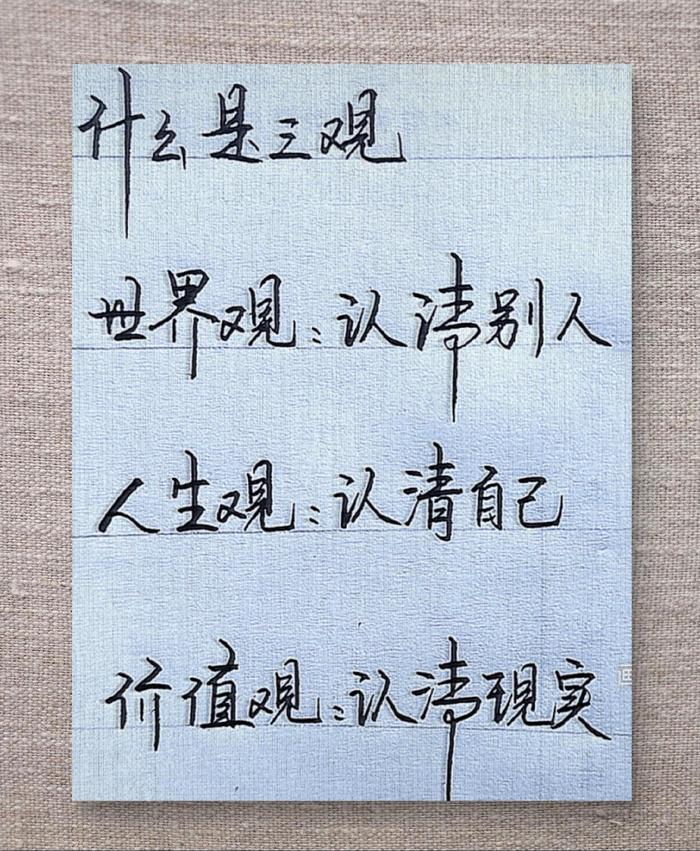 什么是三观
世界观:认清别人
人生观:认清自己
价值观:认清现实